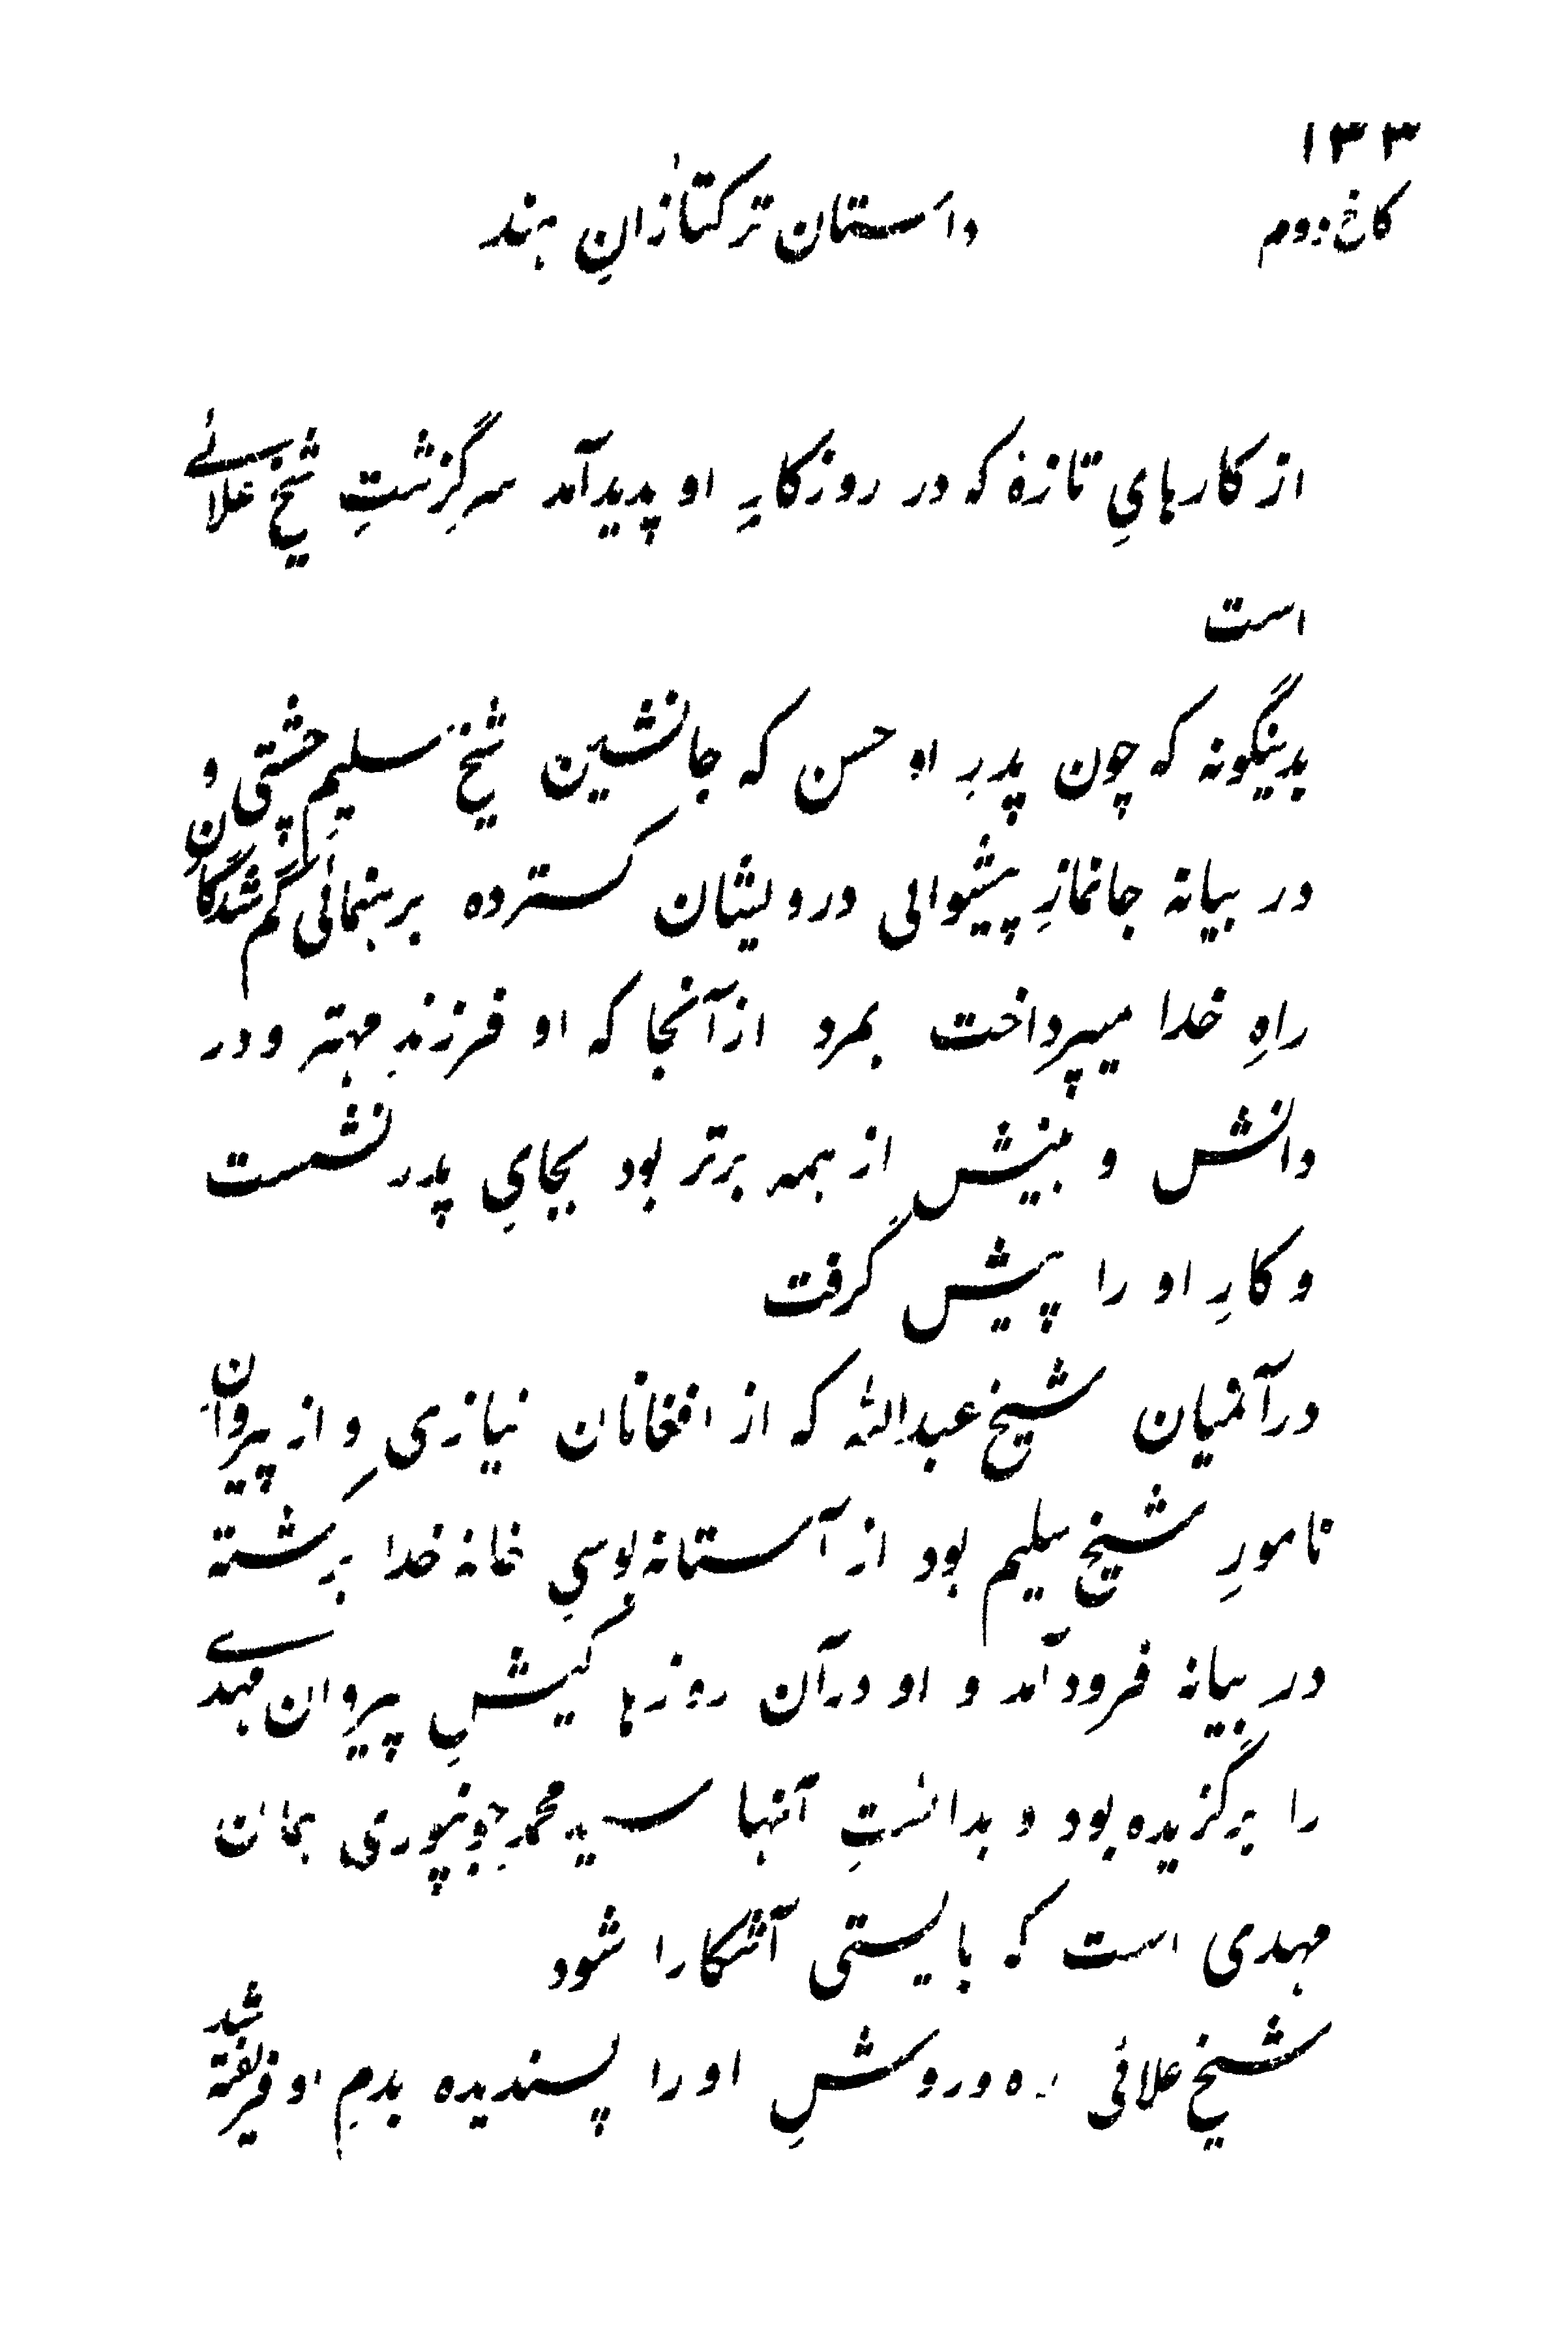 ۱۳۳
کاخ دوم
داستان ترکتازانِ هند
از کارهایِ تازهٔ که در روزگارِ او پدید آمد سرگزشتِ شیخ علائے
است
بدینگونه که چون پدرِ او حسن که جانشین شیخ سلیمِ چشتی و
در بیانه جانمازِ پیشوائی درویشان گسترده برهنمائی گم شدگانِ
راهِ خدا میپرداخت بمرد ازآنجا که او فرزندِ مهتر و در
دانش و بینش از همه برتر بود بجایِ پدر نشست
و کارِ او را پیش گرفت
درآنمیان شیخ عبدالله که از افغانان نیازی و از پیروانِ
نامورِ شیخ سلیم بود از آستانه بوسیِ خانه خدا برگشته
در بیانه فرود آمد و او درآن روزها کیشِ پیروان مهدے
را برگزیده بود و بدانستِ آنها سید محمدِ جونپوری همان
مهدی است که بایستی آشکارا شود
شیخ علائی ره و روشِ او را پسندیده بدمِ او فریفته شد